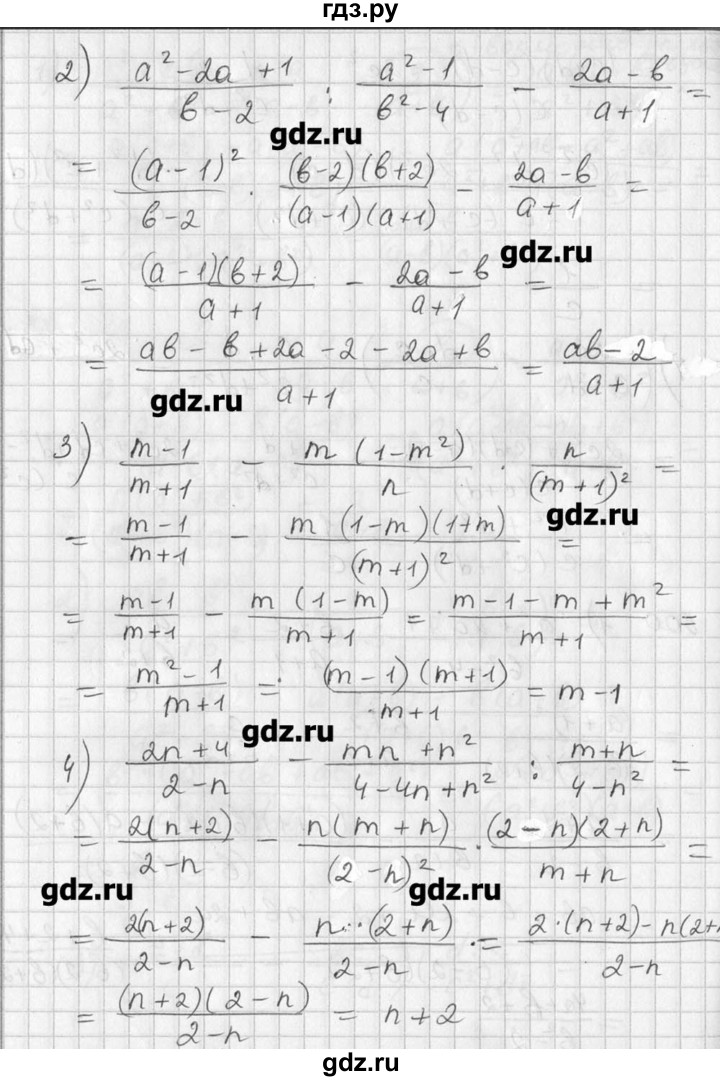 гдз.ру
2) (a²-2a+1)/(b-2) : (a²-1)/(b²-4) - (2a-b)/(a+1) =
gdz.ru
= (a-1)²/(b-2) · (b-2)(b+2)/(a-1)(a+1) - (2a-b)/(a+1) =
gdz.ru
= (a-1)(b+2)/(a+1) - (2a-b)/(a+1) =
= (ab-b+2a-2-2a+b)/(a+1) = (ab-2)/(a+1)
gdz.ru
3) (m-1)/(m+1) - m(1-m²)/n · n/(m+1)² =
gdz.ru
= (m-1)/(m+1) - m(1-m)(1+m)/(m+1)² =
= (m-1)/(m+1) - m(1-m)/(m+1) = (m-1-m+m²)/(m+1) =
= (m²-1)/(m+1) = (m-1)(m+1)/(m+1) = m-1
gdz.ru
4) (2n+4)/(2-n) - (mn+n²)/(4-4n+n²) : (m+n)/(4-n²) =
= 2(n+2)/(2-n) - n(m+n)/(2-n)² · (2-n)(2+n)/(m+n) =
gdz.ru gdz.ru
= 2(n+2)/(2-n) - n·(2+n)/(2-n) = (2·(n+2)-n(2+n)/(2-n)
= (n+2)(2-n)/(2-n) = n+2
gdz.ru